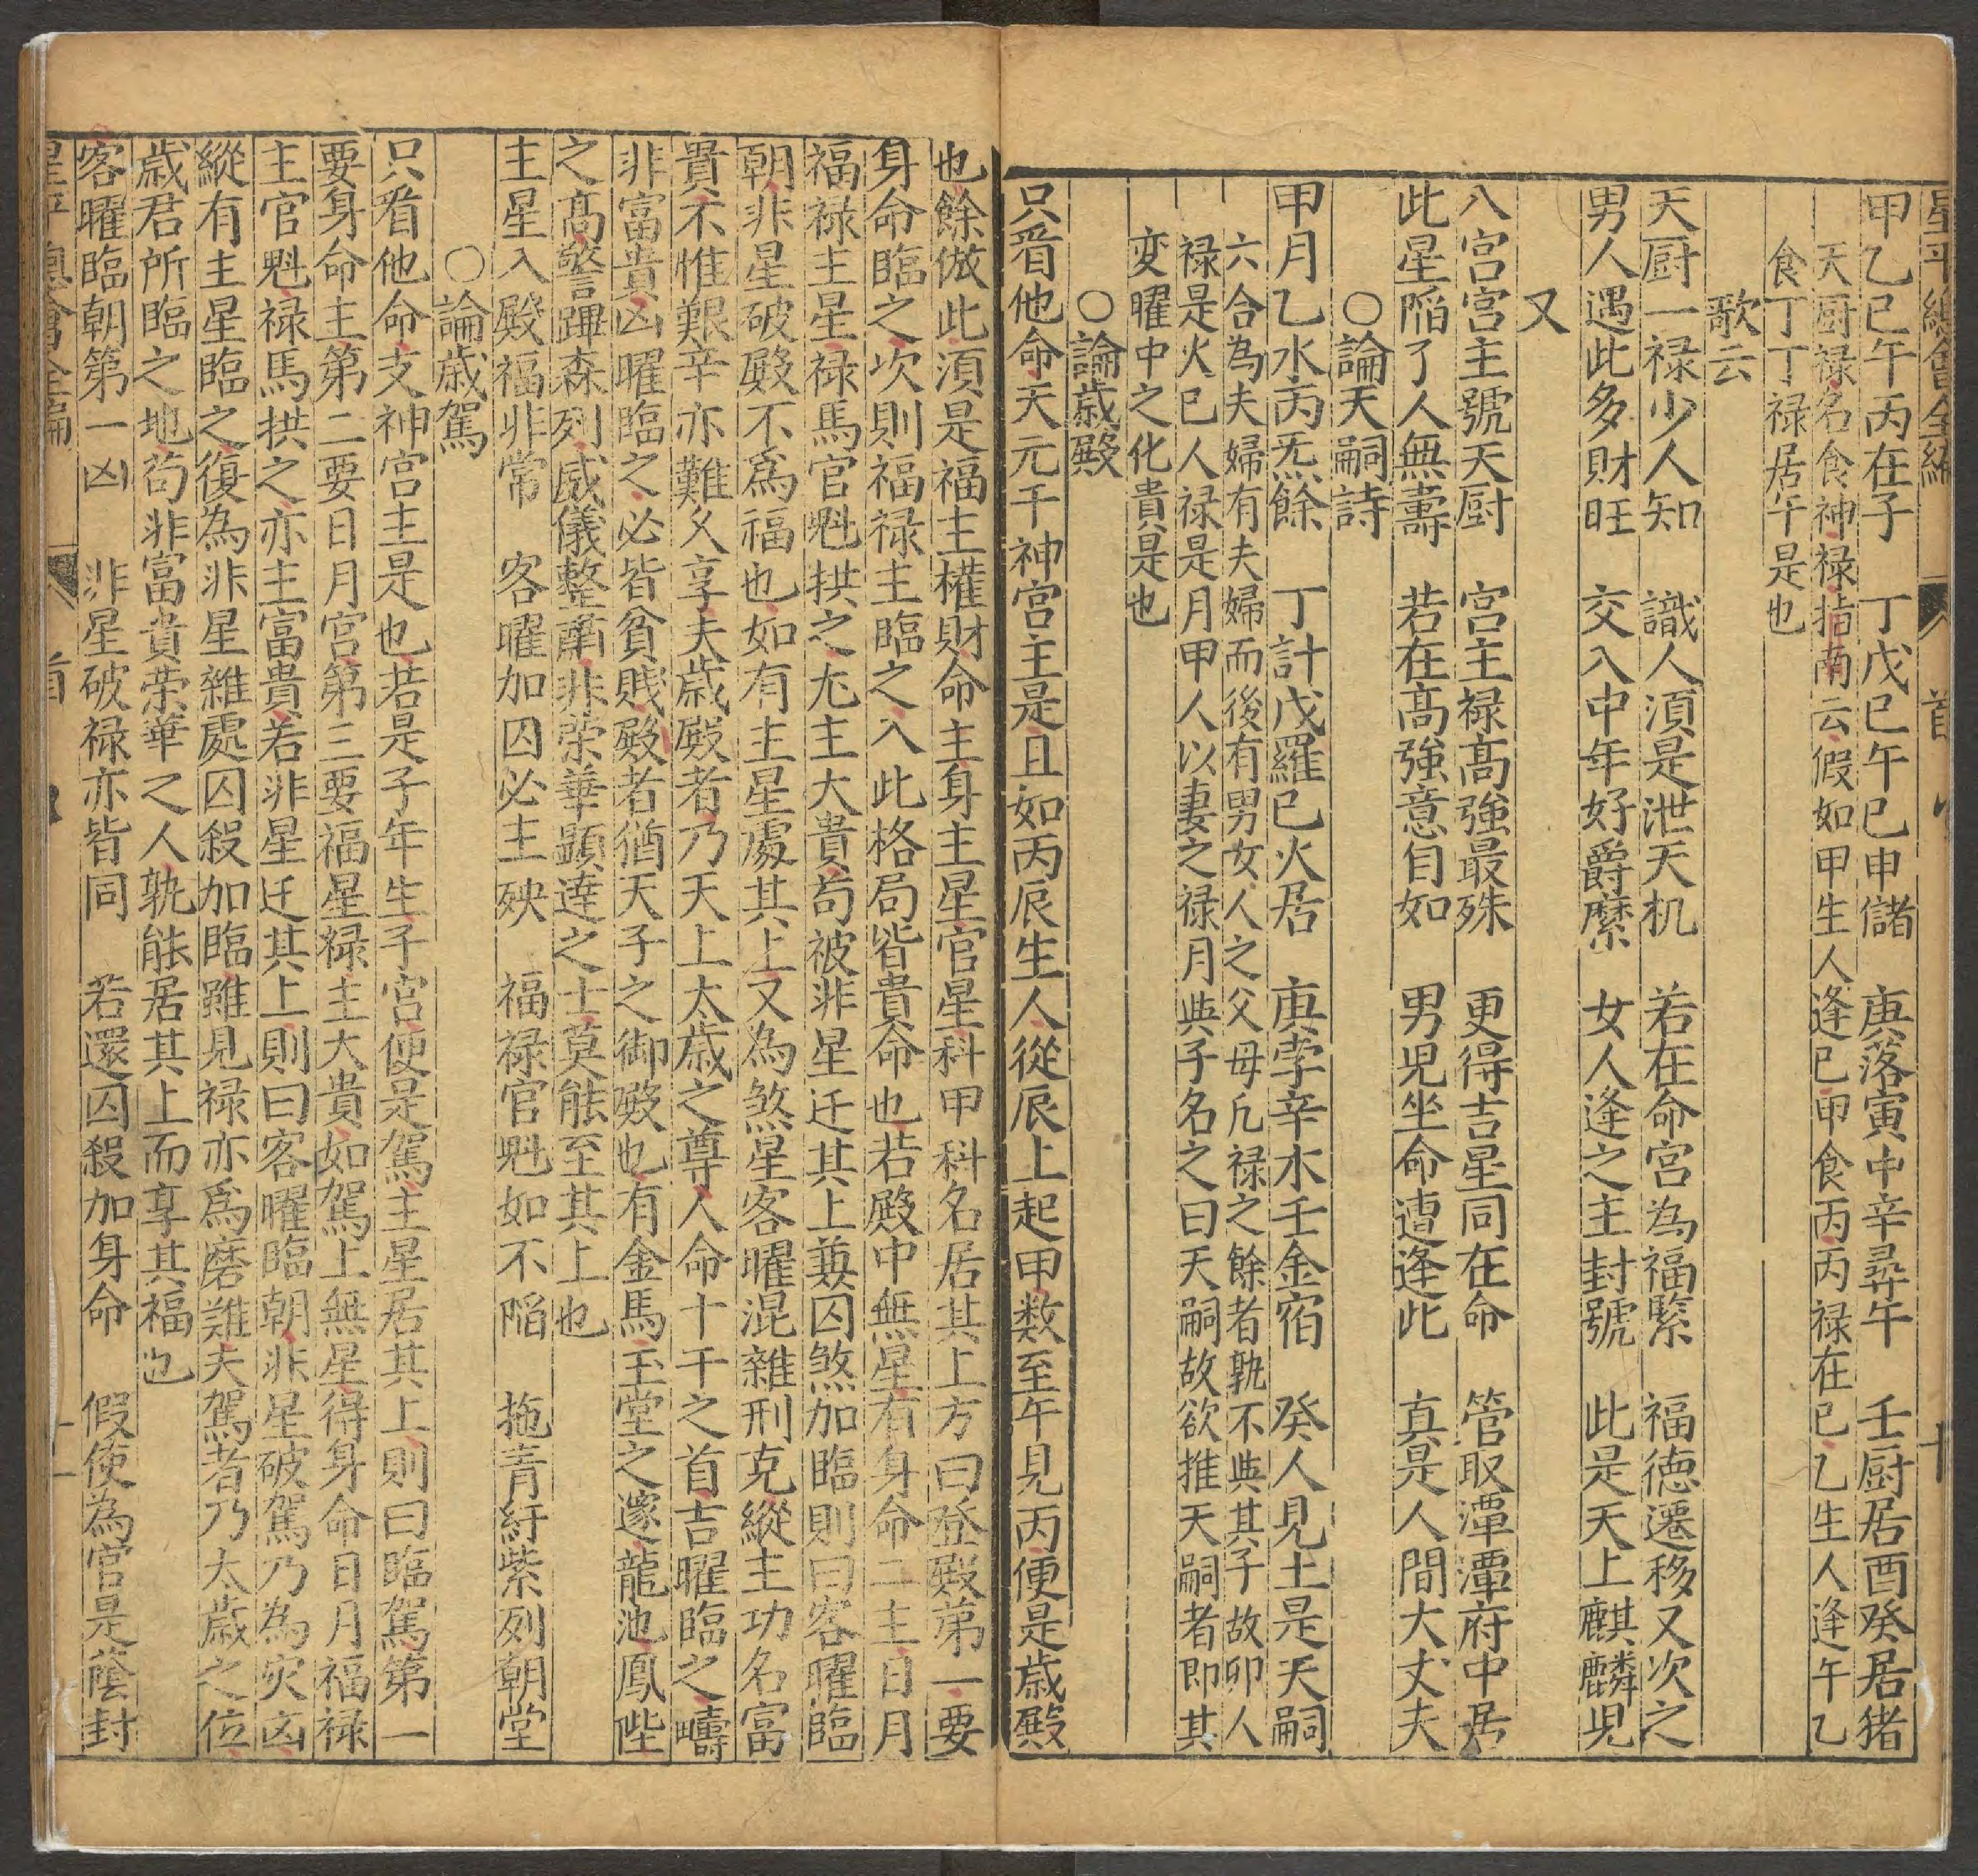 星平總會全編 首 十
甲乙巳午丙在子 丁戊巳午巳申儲 庚落寅中辛尋午 壬厨居酉癸居猪
天厨禄名食神禄指南云假如甲生人逢巳甲食丙丙禄在巳乙生人逢午乙
食丁丁禄居午是也
歌云
天厨一禄少人知 識人湏是泄天机 若在命宫為福緊 福德遷移又次之
男人遇此多財旺 交入中年好爵縻 女人逢之主封號 此是天上麒麟児
又
八宫宫主號天厨 宫主禄髙強最殊 更得吉星同在命 管取潭潭府中居
此星陥了人無壽 若在髙強意自如 男児坐命遭逢此 真是人間大丈夫
○論天嗣詩
甲月乙水丙炁餘 丁計戊羅巳火居 庚孛辛水壬金宿 癸人見土是天嗣
六合為夫婦有夫婦而後有男女人之父母凢禄之餘者孰不與其子故卯人
禄是火巳人禄是月甲人以妻之禄月與子名之曰天嗣故欲推天嗣者即其
変曜中之化貴是也
○論歳殿
只看他命天元干神宫主是且如丙辰生人從辰上起甲数至午見丙便是歳殿
也餘倣此湏是福主權財命主身主星官星科甲科名居其上方曰登殿第一要
身命臨之次則福禄主臨之入此格局皆貴命也若殿中無星有身命二主日月
福禄主星禄馬官魁拱之尢主大貴苟被非星迁其上兼囚煞加臨則曰客曜臨
朝非星破殿不為福也如有主星處其上又為煞星客曜混雜刑克縱主功名富
貴不惟艱辛亦難久享夫歳殿者乃天上太歳之尊人命十干之首吉曜臨之疇
非富貴凶曜臨之必皆貧賎殿者猶天子之御殿也有金馬玉堂之邃龍池鳳陛
之髙警蹕森列威儀整肅非荣華顕達之士莫能至其上也
主星入殿福非常 客曜加囚必主殃 福禄官魁如不陥 拖青紆紫列朝堂
○論歳駕
只看他命支神宫主是也若是子年生子宫便是駕主星居其上則曰臨駕第一
要身命主第二要日月宫第三要福星禄主大貴如駕上無星得身命日月福禄
主官魁禄馬拱之亦主富貴若非星迁其上則曰客曜臨朝非星破駕乃為灾凶
縱有主星臨之復為非星雜處囚殺加臨雖見禄亦為磨難夫駕者乃太歳之位
歳君所臨之地苟非富貴荣華之人孰能居其上而享其福也
客曜臨朝第一凶 非星破禄亦皆同 若還囚殺加身命 假使為官是蔭封
星平總會全編 首 十一